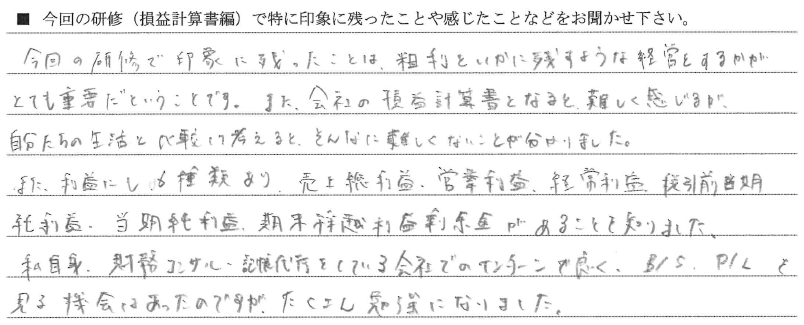 ■ 今回の研修（損益計算書編）で特に印象に残ったことや感じたことなどをお聞かせ下さい。
今回の研修で印象に残ったことは、粗利をいかに残すような経営をするかが
とても重要だということです。また、会社の損益計算書となると、難しく感じるが、
自分たちの生活と比較して考えると、そんなに難しくないことが分かりました。
また、利益にも種類あり、売上総利益、営業利益、経常利益、税引前当期
純利益、当期純利益、期末繰越利益剰余金があることを知りました。
私自身、財務コンサル・記帳代行をしている会社でのインターンで良く、B/S、P/Lを
見る機会はあったのですが、たくさん勉強になりました。